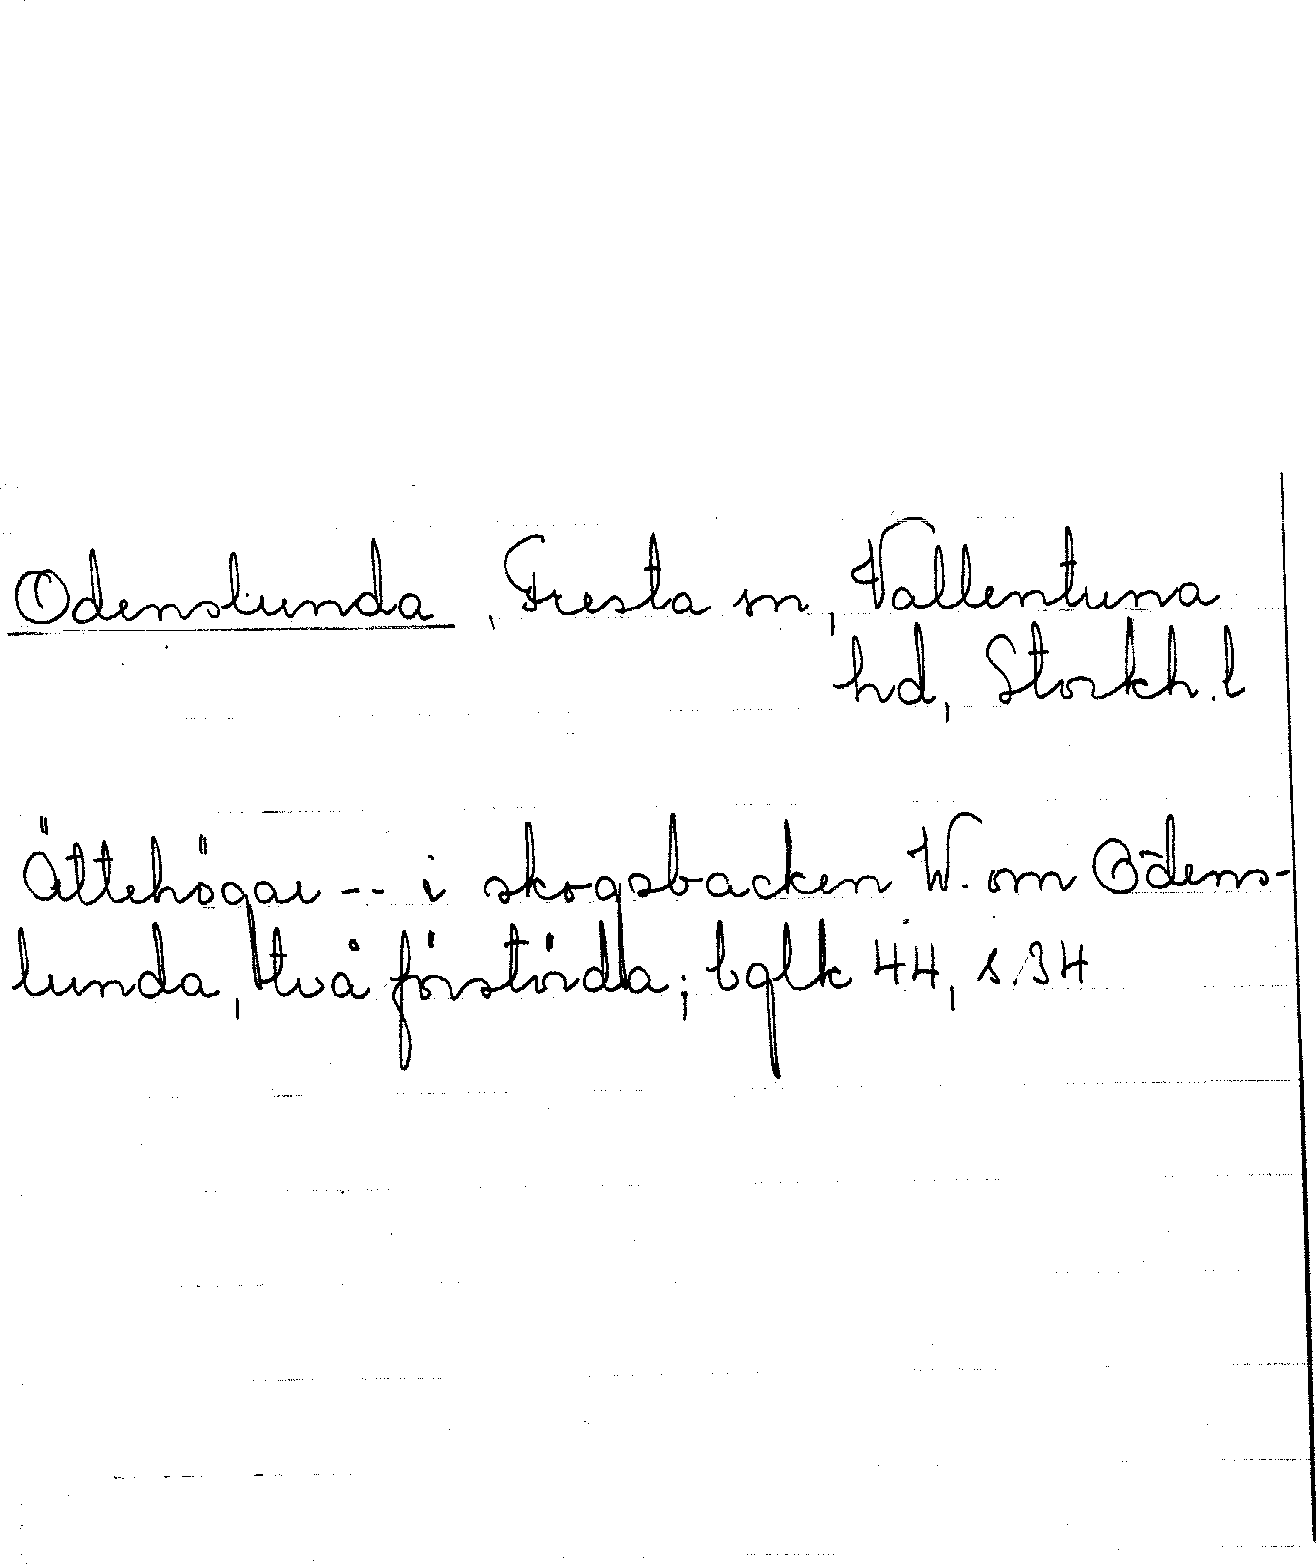 Odenslunda, Fresta sn, Vallentuna
hd, Storkh.l
Ättehögar -- i skogsbacken W. om Odens-
lunda, två förstörda; bglk 44, s. 34